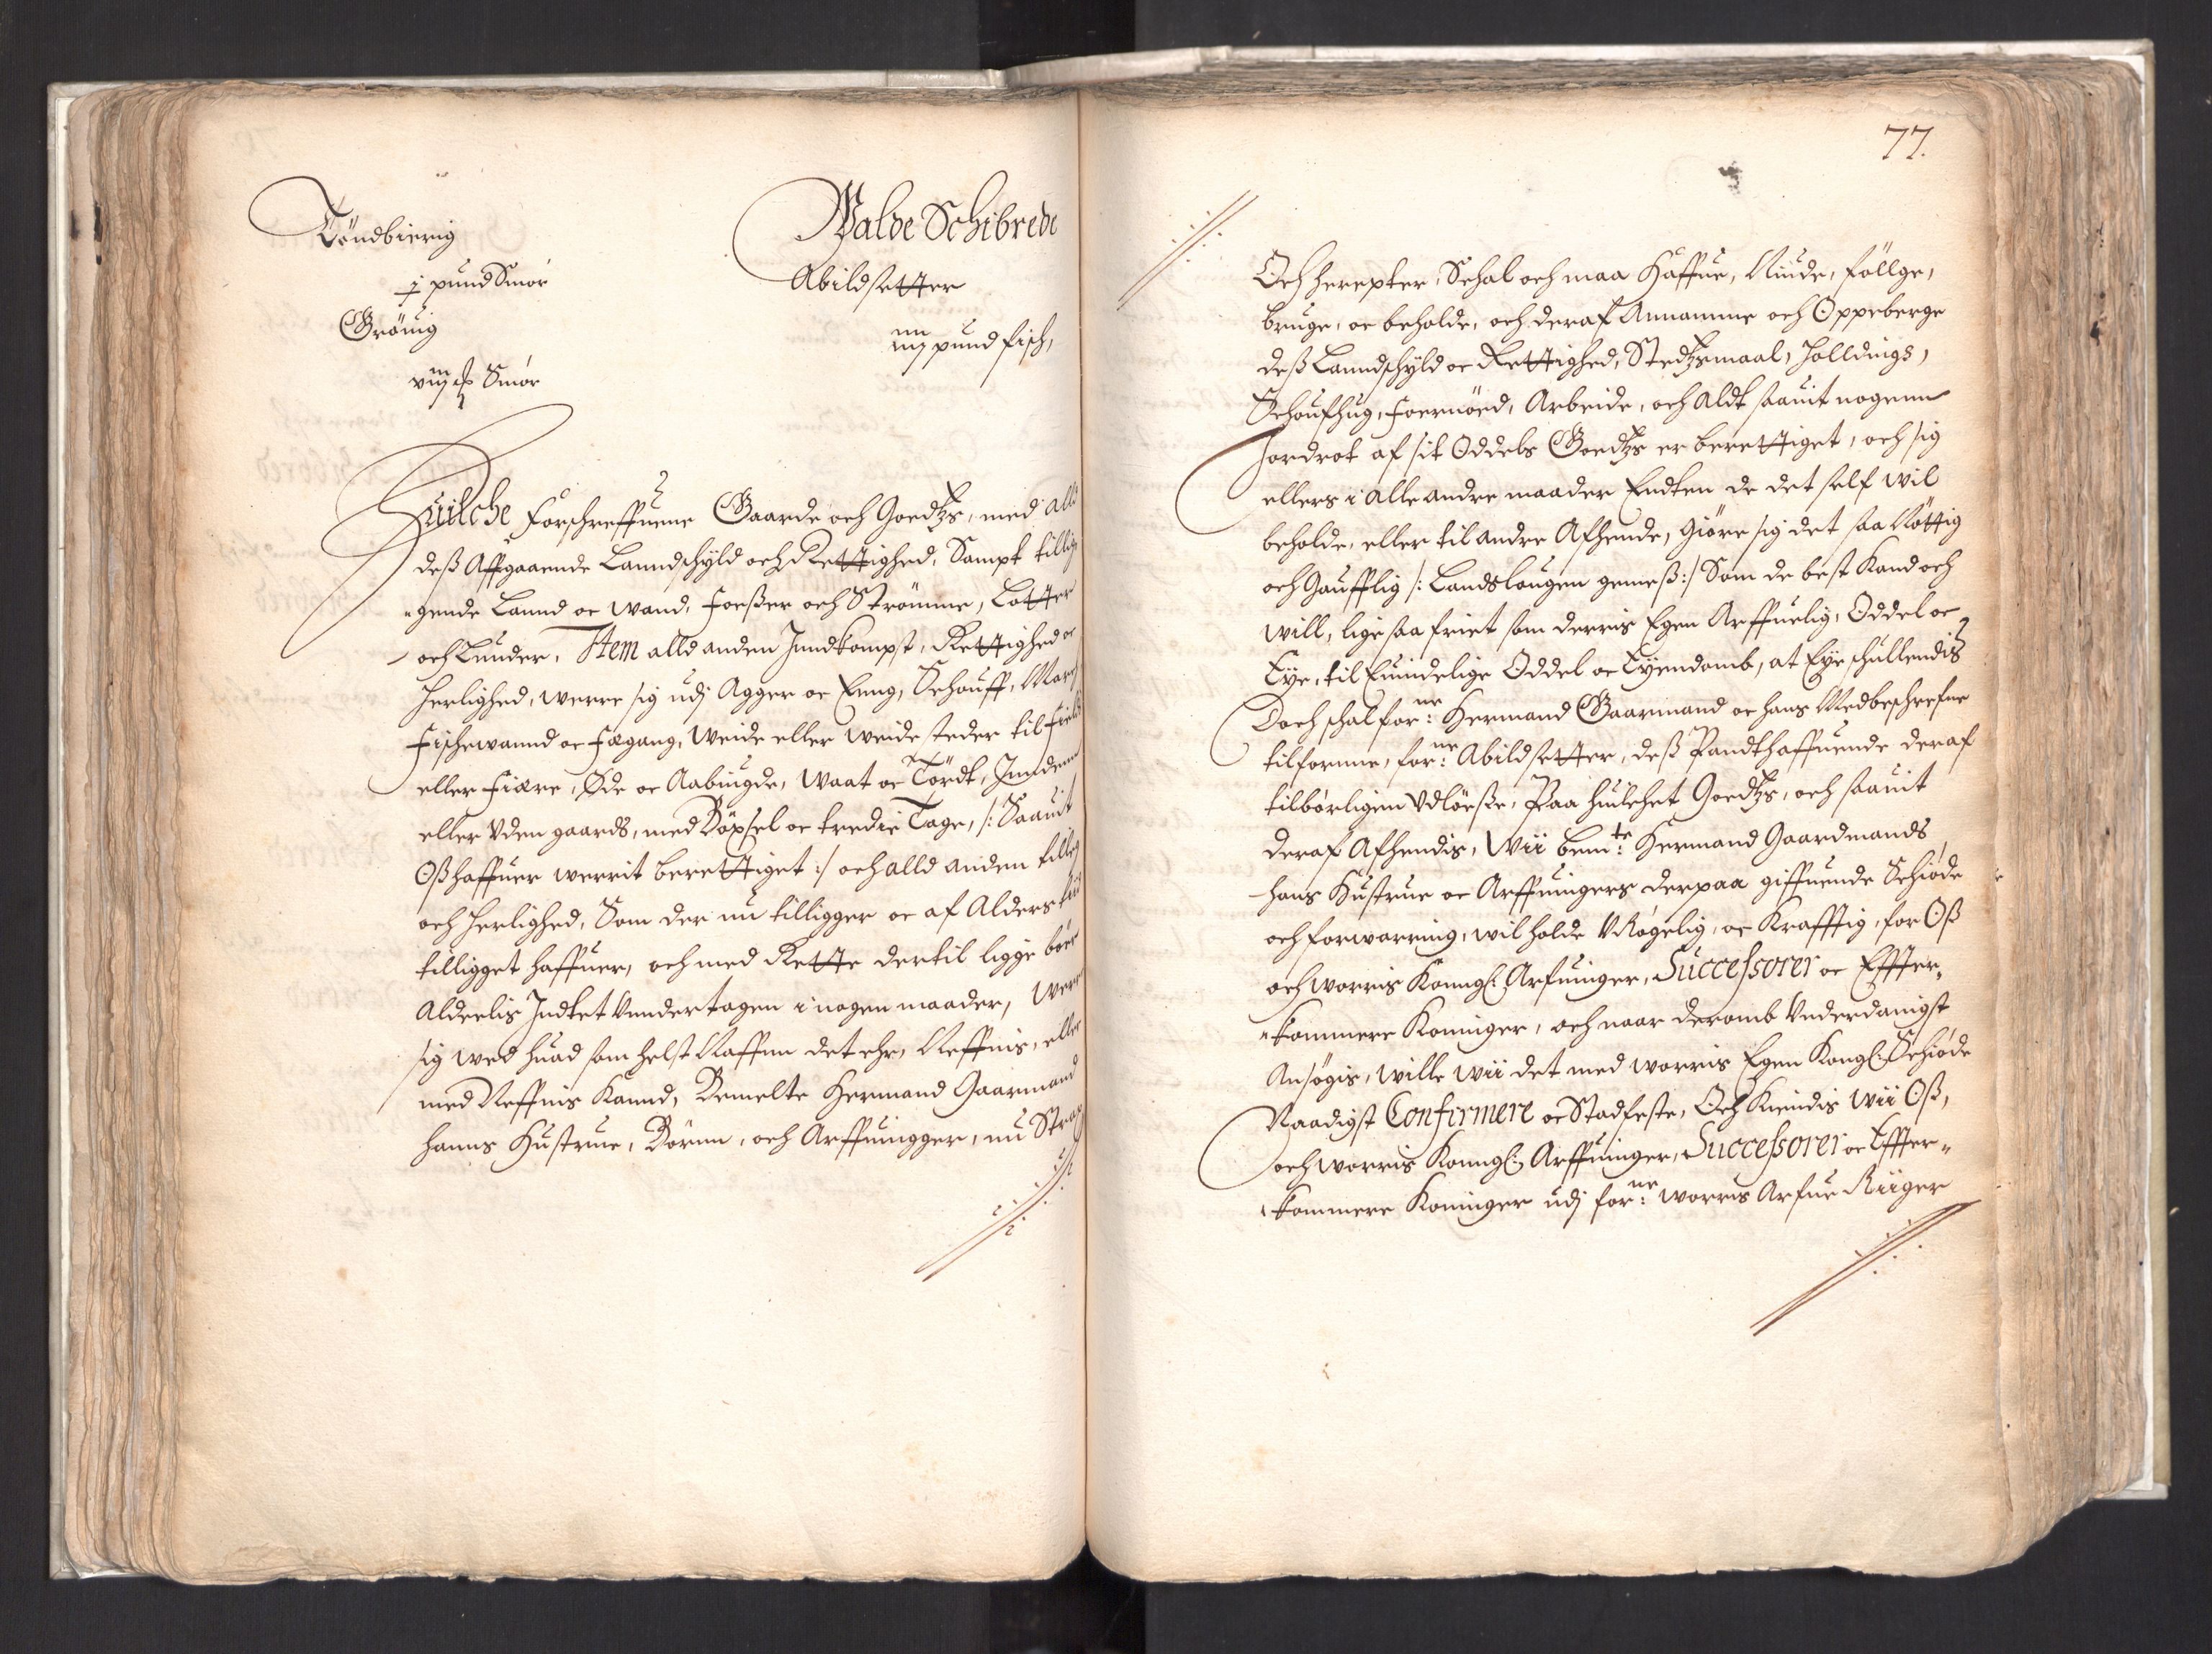 Töndbierig
j pund Smör
Grönig
viij Smör
Walde Schibrede
Abildsetter
iiij pund fisch,
Huilche forschreffuene Gaarde och Goedtzs, med all
deß Affgaaende Lanndschyld och Rettighed, Sampt tillig
"gende Lannd oc wand, Foeßer och Strömme, Lotter
och Lunder, Item alld anden Jnndkompst, Rettighed oc
Herlighed, werre sig udj Agger oc Enng, Schouff, Marc
Fischewannd oc Fægang, Weide eller Weide steder til Field
eller Fiære, Øde oc Aabiugde, Waat oc Tördt, Jnnden
eller Uden gaards, med Böxsel oc tredie Tage, /: Saauit
Oß haffuer werrit berettiget :/ och alld anden tillig
och Herlighed, Som der nu tilligger oc af Alders tid
tilligget haffuer, och med Rette dertil ligge bör
Aldeelis Jndtet Unndertagen i nogen maader, Were
sig wed huad som helst Naffnn det ehr, Neffnis, eller
med Neffnis Kannd, Bemelte Hermand Gaarmand
hanns Hustrue, Börnn, och Arffuingger, nu Strax
77.
Och herepter, Schal och maa Haffue, Niude, föllge,
bruge, oc beholde, och deraf Annamme och Oppeberge
deß Lanndschyld oc Rettighed, Stedtzsmaal, Holldings,
Schoufhug, Foernöed, Arbeide, och Aldt saauit nogenn
Jordrot af sit Oddels Goedtzs er berettiget, och sig
ellers i Alle andre maader Endten de det self Wil
beholde, eller til andre Afhende, Giöre sig det saa Nöttig
och Gaufflig /: Landslougen gemeß :/ Som de best Kand och
will, lige saa friet som derris Egen Arffuelig, Oddel oc
Eye, til Euindelige Oddel oc Eyendomb, at Eye schullendis
Doch schal forne: Hermand Gaarmand oc hans Medbeschrefne
tilfornne, forne: Abildsetter, deß Pandthaffuende deraf
tilbörligen Udlöeße, Paa huilchet Goedtzs, och saauit
deraf Afhendis, Wii bemte: Hermand Gaardmands,
hans Hustrue oc Arffuingers derpaa giffuende Schiöde
och forwarring, wil holde URögelig, oc Krafftig, for Oß
och worris Konngl: Arfuinger, Successorer oc Effter"
"kommere Koninger, och naar deromb Underdanigst
Ansögis, Wille wii det med worris Egen Kongl: Schiöde
Naadigst Confirmere oc Stadfeste, Och Kiendis wii Oß,
och worris Konngl: Arffuinger, Successorer oc Effter"
"kommere Koninger udj forne: worris Arfue Riiger